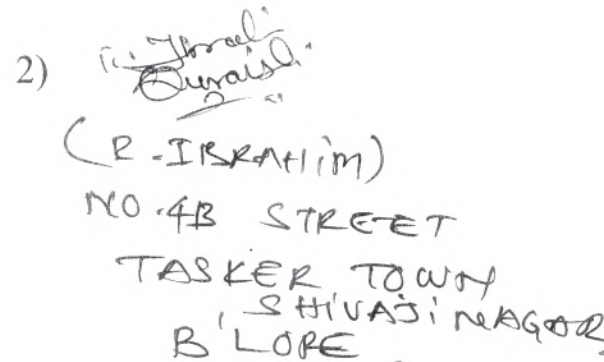 2)
Quraishi
(R.IBRAHIM)
NO.4B STREET
TASKER TOWN
SHIVAJI NAGAR
B'LORE